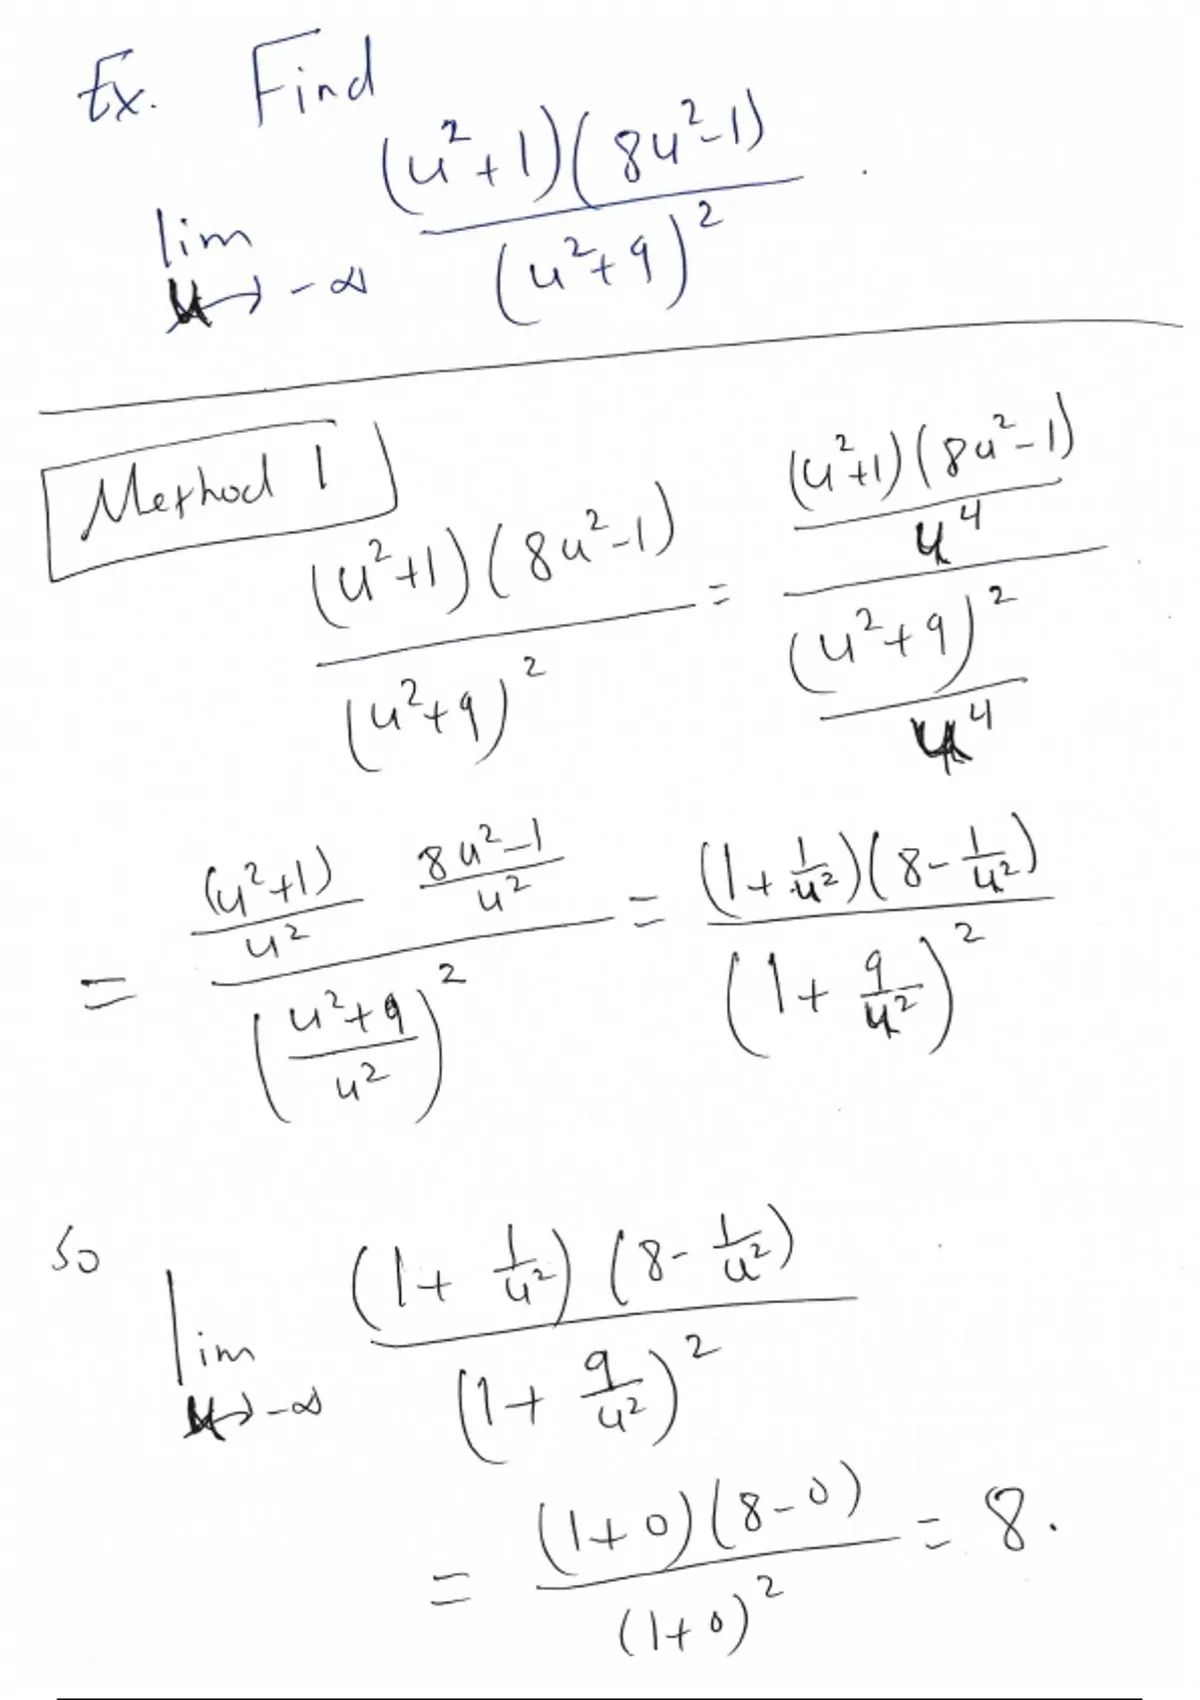 Ex. Find
lim u→-∞ (u²+1)(8u²-1) / (u²+9)² .
Method 1
(u²+1)(8u²-1) / (u²+9)² = ((u²+1)(8u²-1) / u⁴) / ((u²+9)² / u⁴)
= ((u²+1) / u² (8u²-1) / u²) / ((u²+9) / u²)² = (1 + 1/u²)(8 - 1/u²) / (1 + 9/u²)²
So
lim u→-∞ (1 + 1/u²)(8 - 1/u²) / (1 + 9/u²)²
= (1+0)(8-0) / (1+0)² = 8.